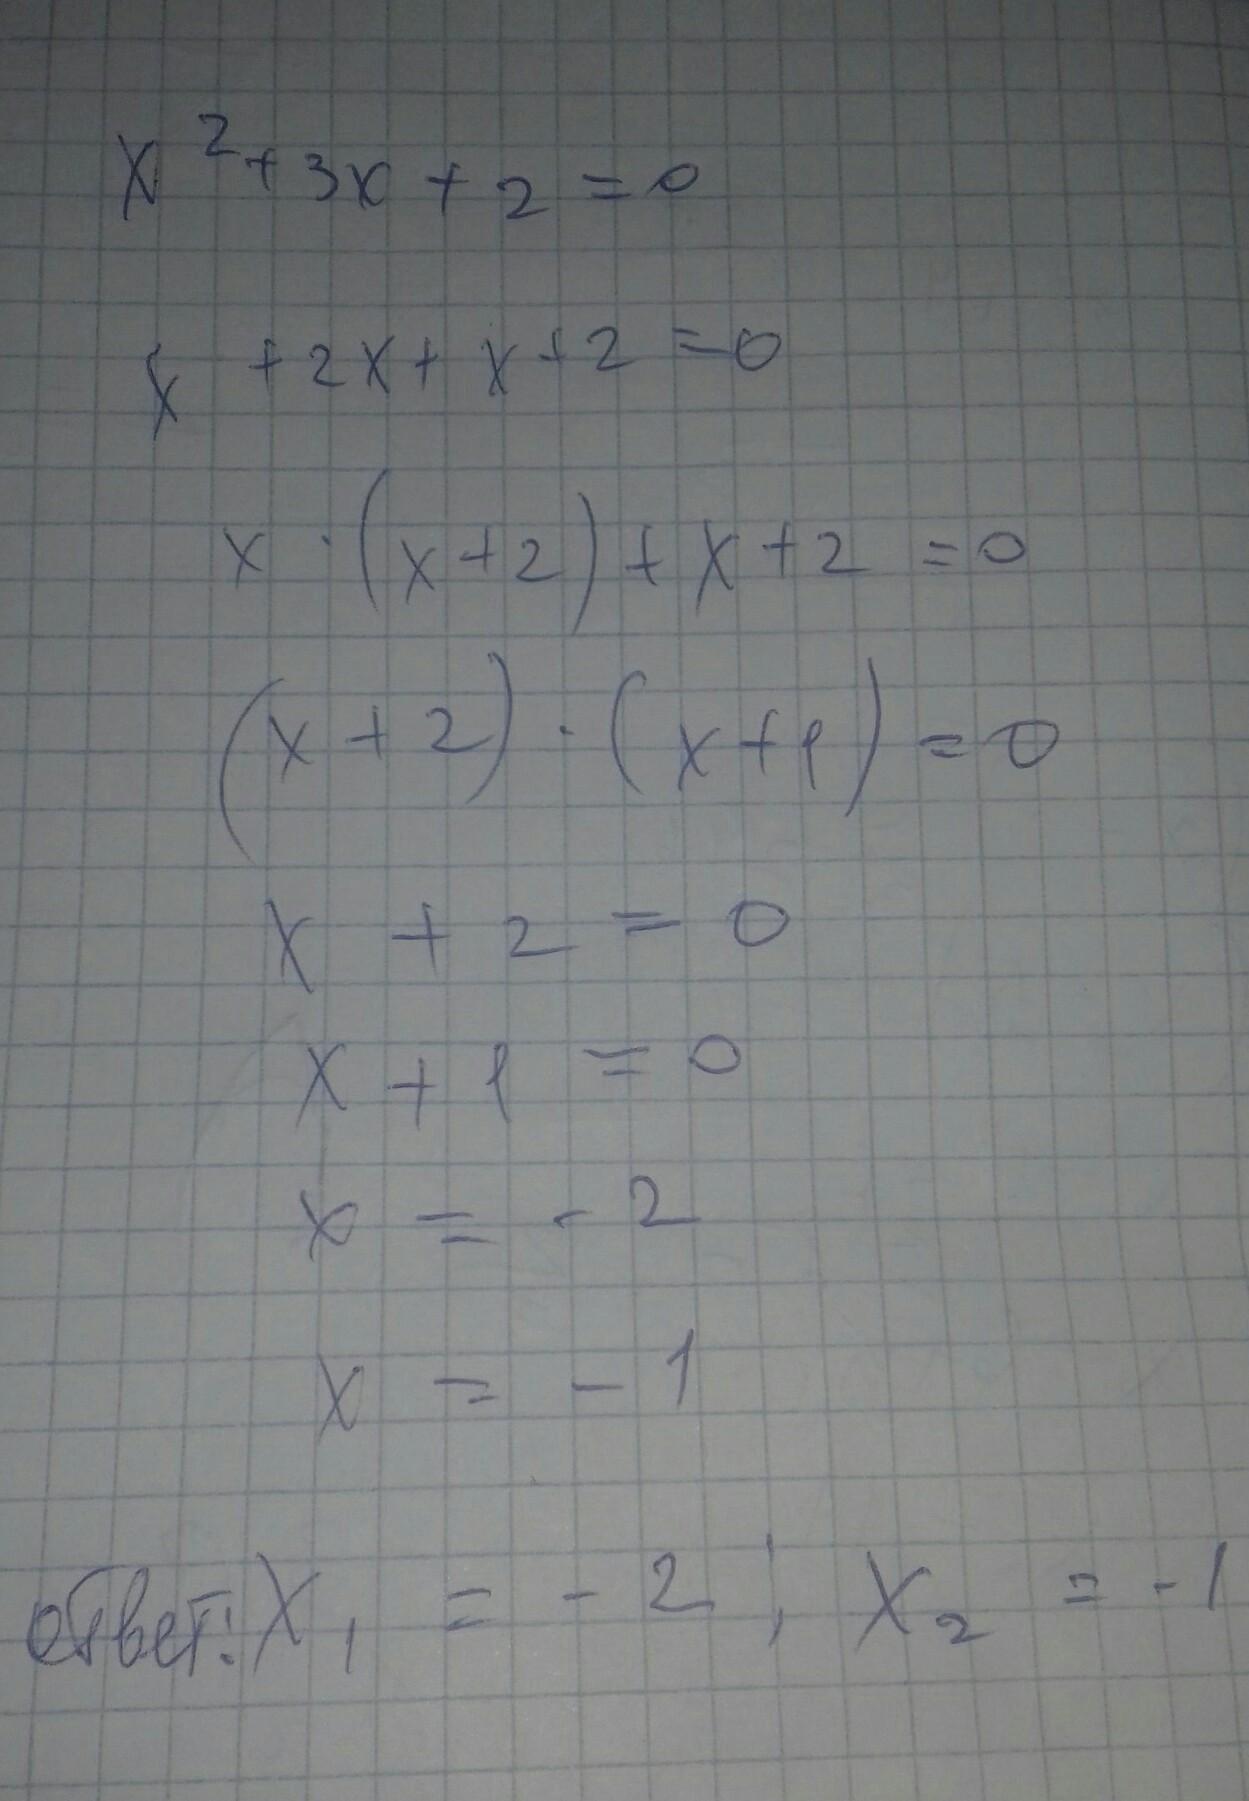 x² + 3x + 2 = 0
x + 2x + x + 2 = 0
x · (x + 2) + x + 2 = 0
(x + 2) · (x + 1) = 0
x + 2 = 0
x + 1 = 0
x = - 2
x = - 1
ответ: x₁ = - 2 ; x₂ = - 1